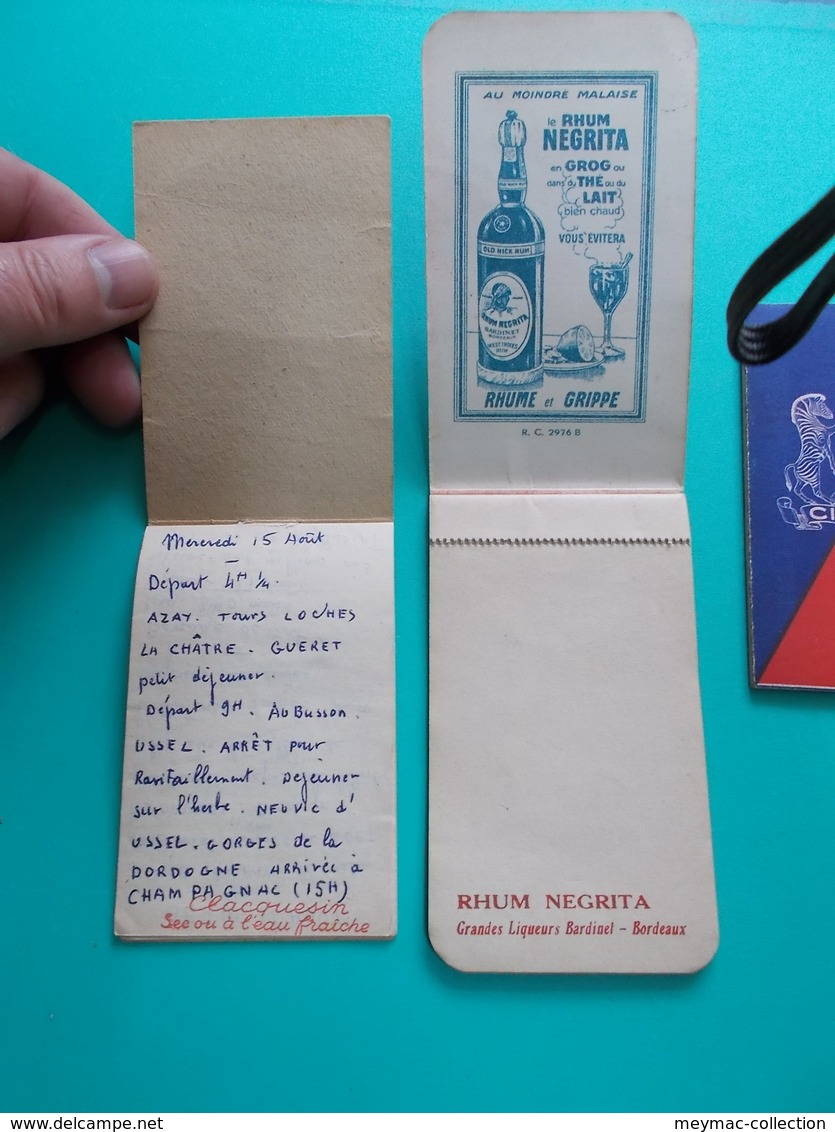 Mercredi 15 Août
Départ 4H 1/4.
AZAY. TOURS LOCHES
LA CHÂTRE. GUERET
petit déjeuner.
Départ 9H. AuBusson.
USSEL. ARRÊT pour
Ravitaillement. Déjeuner
sur l'herbe. NEUVIC d'
USSEL. GORGES de la
DORDOGNE ARRIVÉE à
CHAMPAGNAC (15H)
Clacquesin
Sec ou à l'eau fraîche
AU MOINDRE MALAISE
le RHUM
NEGRITA
en GROG ou
dans du THÉ ou du
LAIT
bien chaud
VOUS EVITERA
OLD NICK RUM
OLD NICK RUM
RHUM NEGRITA
BARDINET
BORDEAUX
WEST INDIES
RUM
RHUME et GRIPPE
R. C. 2976 B
RHUM NEGRITA
Grandes Liqueurs Bardinet - Bordeaux
CI
https://www.delcampe.net
meymac-collection